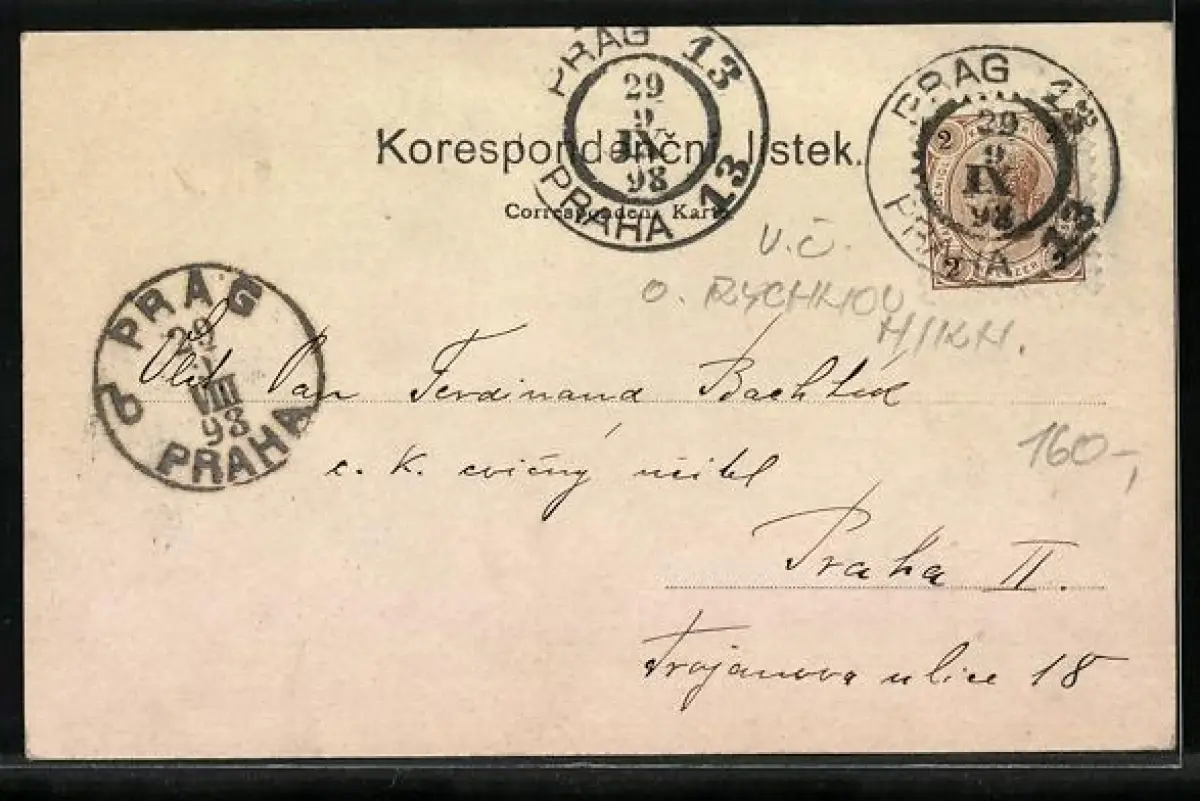 PRAG 13
29
9
IX
98
PRAHA 13
PRAG 13
29
9
IX
98
PRAHA 13
2
2
Korespondenční lístek.
Correspondenz Karte
V. Č.
O. RYCHNOV
H/KN.
PRAG
29
VIII
98
PRAHA
Pan Ferdinand
160-,
c. k. cvičný učitel
Praha II.
Trojanova ulice 18